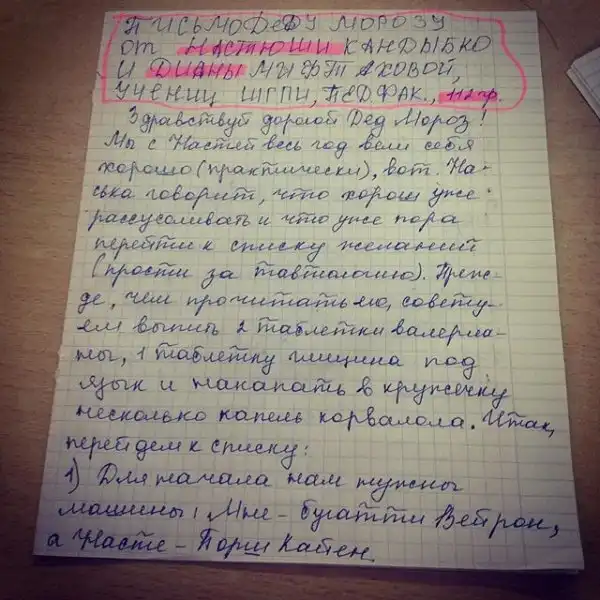 ПИСЬМО ДЕДУ МОРОЗУ
ОТ НАСТЮШИ КАНДЫБКО
И ДИАНЫ МЫФТАХОВОЙ,
УЧЕНИЦ ШГПИ, ПЕД.ФАК., 112 гр.
Здравствуй дорогой Дед Мороз!
Мы с Настей весь год вели себя
хорошо (практически), вот. На-
ська говорит, что хорош уже
рассусоливать и что уже пора
перейти к списку желаний
(прости за тавтологию). Преж-
де, чем прочитать его, совету-
ем выпить 2 таблетки валериа-
ны, 1 таблетку глицина под
язык и накапать в кружечку
несколько капель корвалола. Итак,
перейдем к списку:
1) Для начала нам нужны
машины: Мне - бугатти Вейрон,
а Насте - Порш Кайен